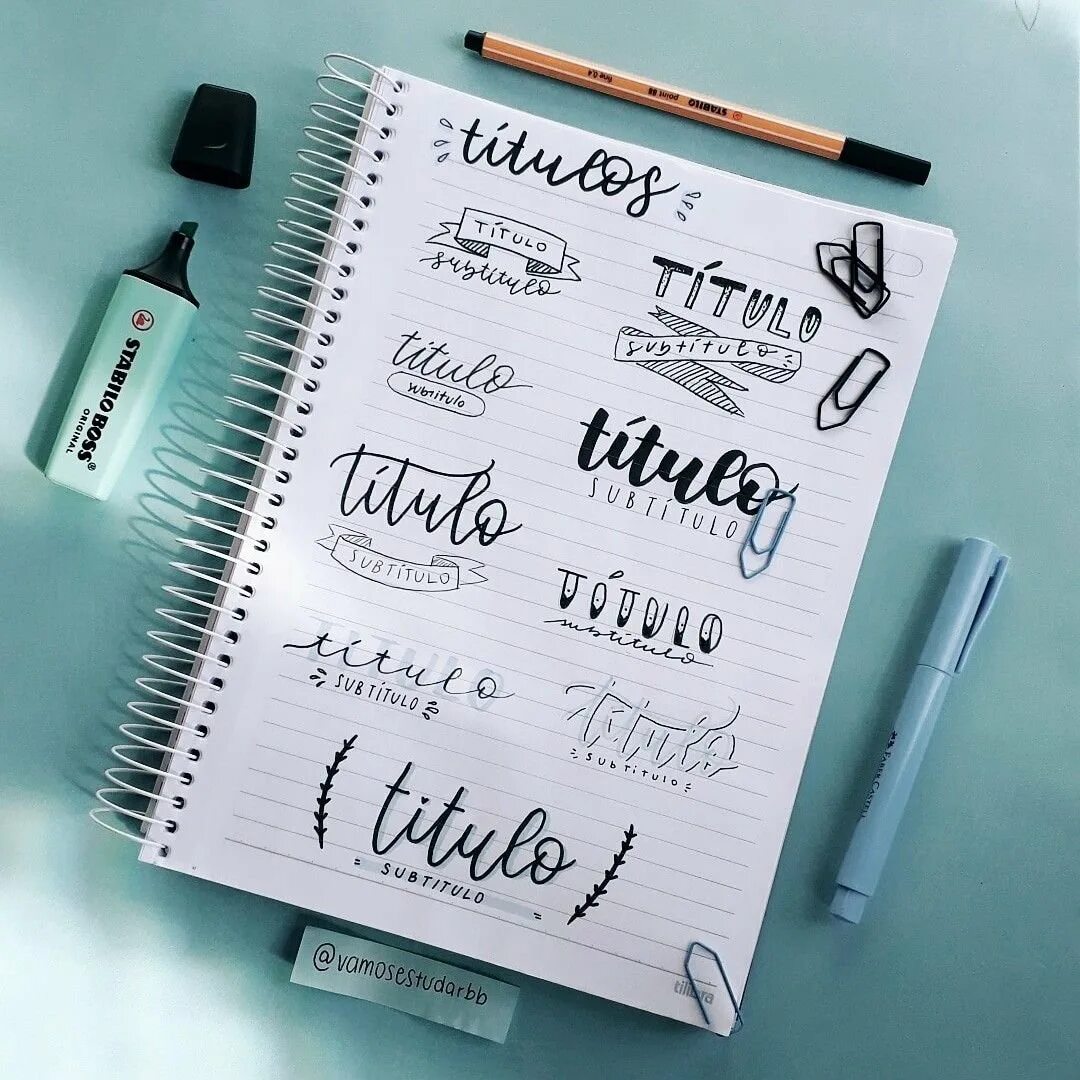 títulos
TÍTULO
subtítulo
TÍTULO
subtítulo
título
subtítulo
título
SUBTÍTULO
título
SUBTÍTULO
TÍTULO
subtítulo
TÍTULO
título
SUBTÍTULO
título
SUBTÍTULO
título
SUBTITULO
@vamosestudarbb
STABILO BOSS®
ORIGINAL
STABILO
point 88
fine 0,4
FABER CASTELL